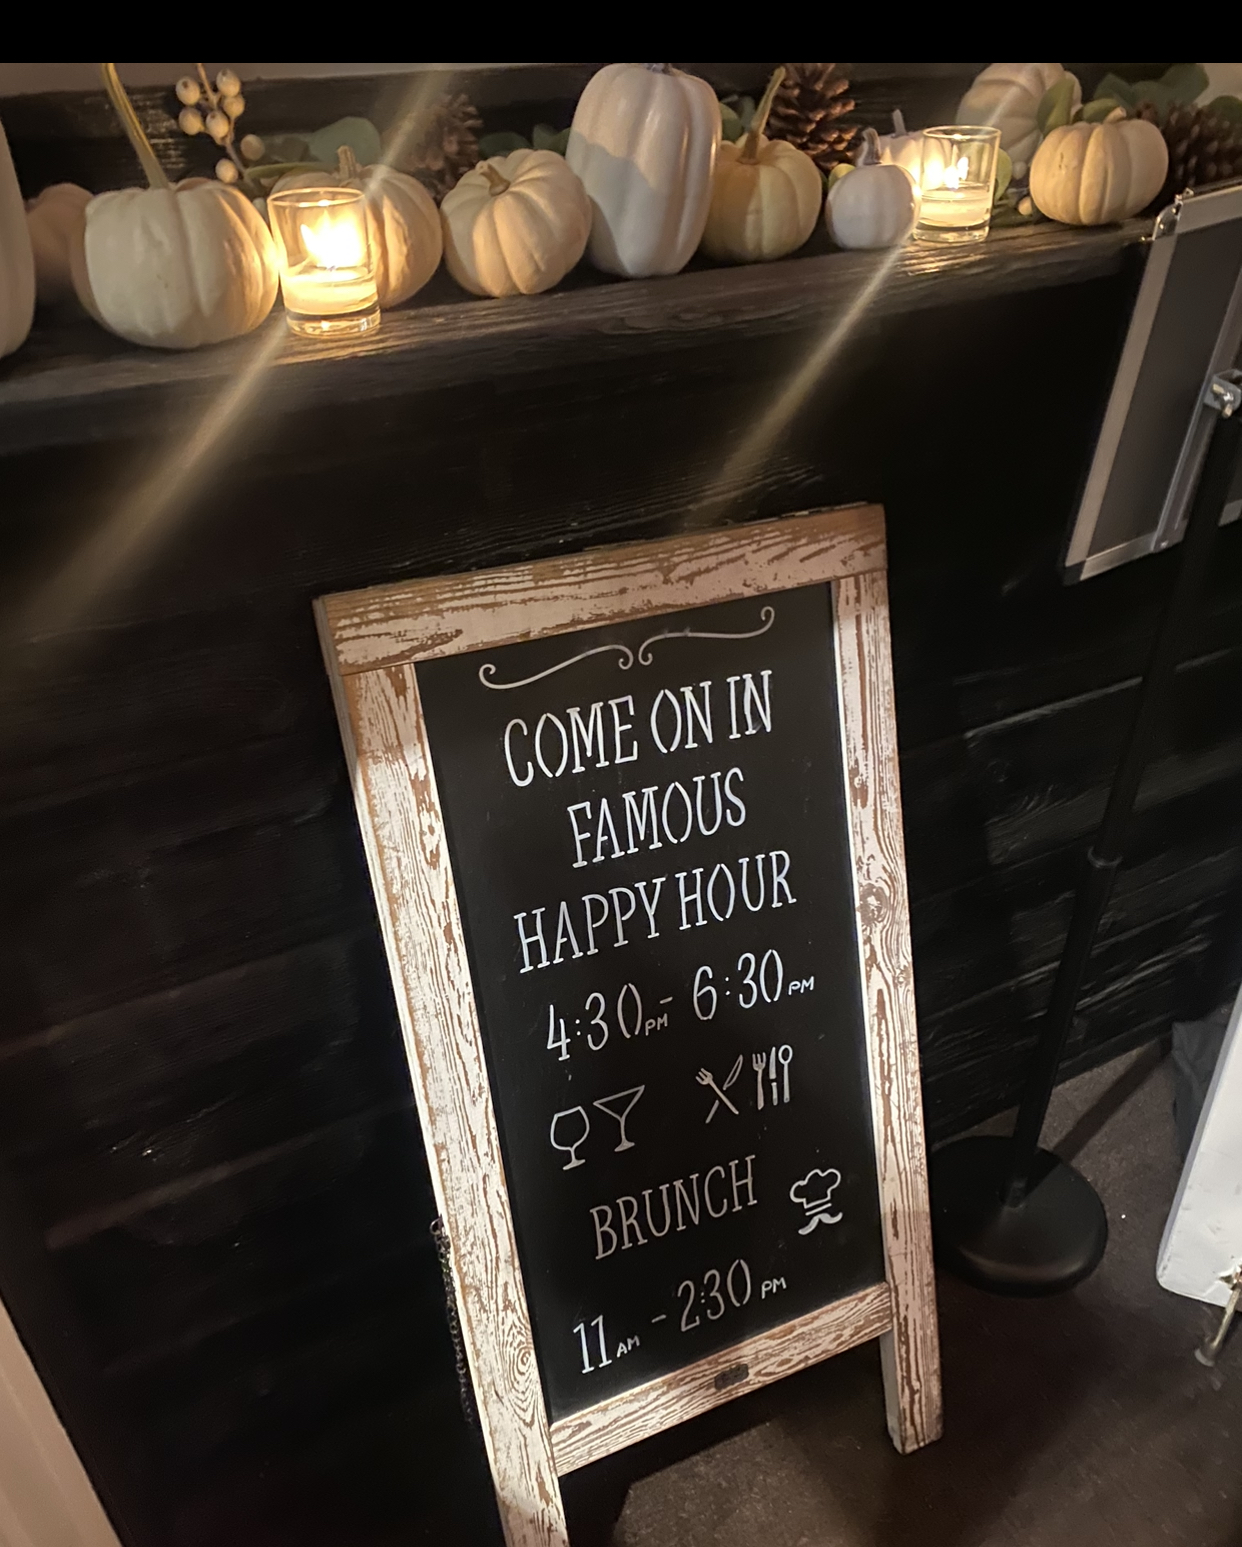 COME ON IN
FAMOUS
HAPPY HOUR
4:30PM - 6:30PM
BRUNCH
11AM - 2:30PM